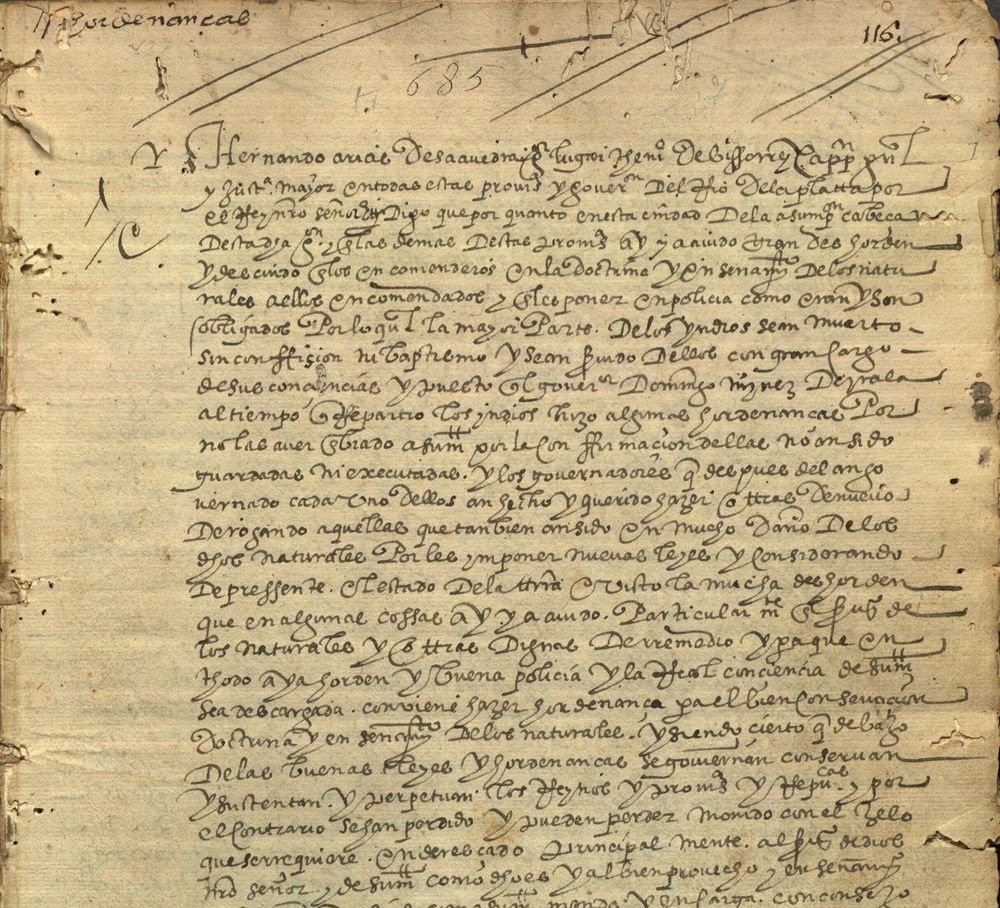 hordenanças
116
685
Hernando arias de saavedra lugar theni de visorrey capp gnl
y just mayor en todas estas provins y gover del Rio de la platta por
el Rey nro señor Digo que por quanto en esta ciudad de la asumpn cabeca
desta dha gn y las demas destas provins ay y a avido gran deshorden
y descuido en los encomenderos en la doctrina y enseñami de los natu
rales a ellos encomendados y en les poner en policia como eran y son
obligados Por lo ql la mayor Parte de los yndios se an muerto
sin conffision ni baptismo y se an servido dellos con gran cargo
de sus conciencias y puesto quel gover Domingo mrnez De yrala
al tiempo q Repartio los yndios hizo algunas hordenancas Por
no las aver enbiado a su mt por la confirmacion dellas no an sido
guardadas ni executadas y los governadores q despues del an go
vernado cada uno dellos an hecho y querido hazer ottras De nuevo
Derogando aquellas que tanbien an sido en mucho Daño De los
dhos naturales Por les ymponer nuevas leyes y considerando
De pressente el estado De la ttrra e visto la mucha deshorden
que en algunas cossas ay y a avido Particularmte en el servi de
los naturales y ottras Dignas De rremedio y pa que en
thodo aya horden y buena policia y la Real conciencia de su mt
sea descargada conviene hazer hordenanca pa el bien conservacion
Doctrina y enseñami De los naturales y siendo cierto q debaxo
De las buenas leyes y hordenancas se goviernan conservan
y sustentan y perpetuan los Reynos y provins y Repucas y por
el contrario se han perdido y pueden perder movido con el zelo
que se rrequiere enderescado principalmente al servi de dios
nro señor y de su mt como dho es y al bien provecho y enseñami
manda y encarga con consejo